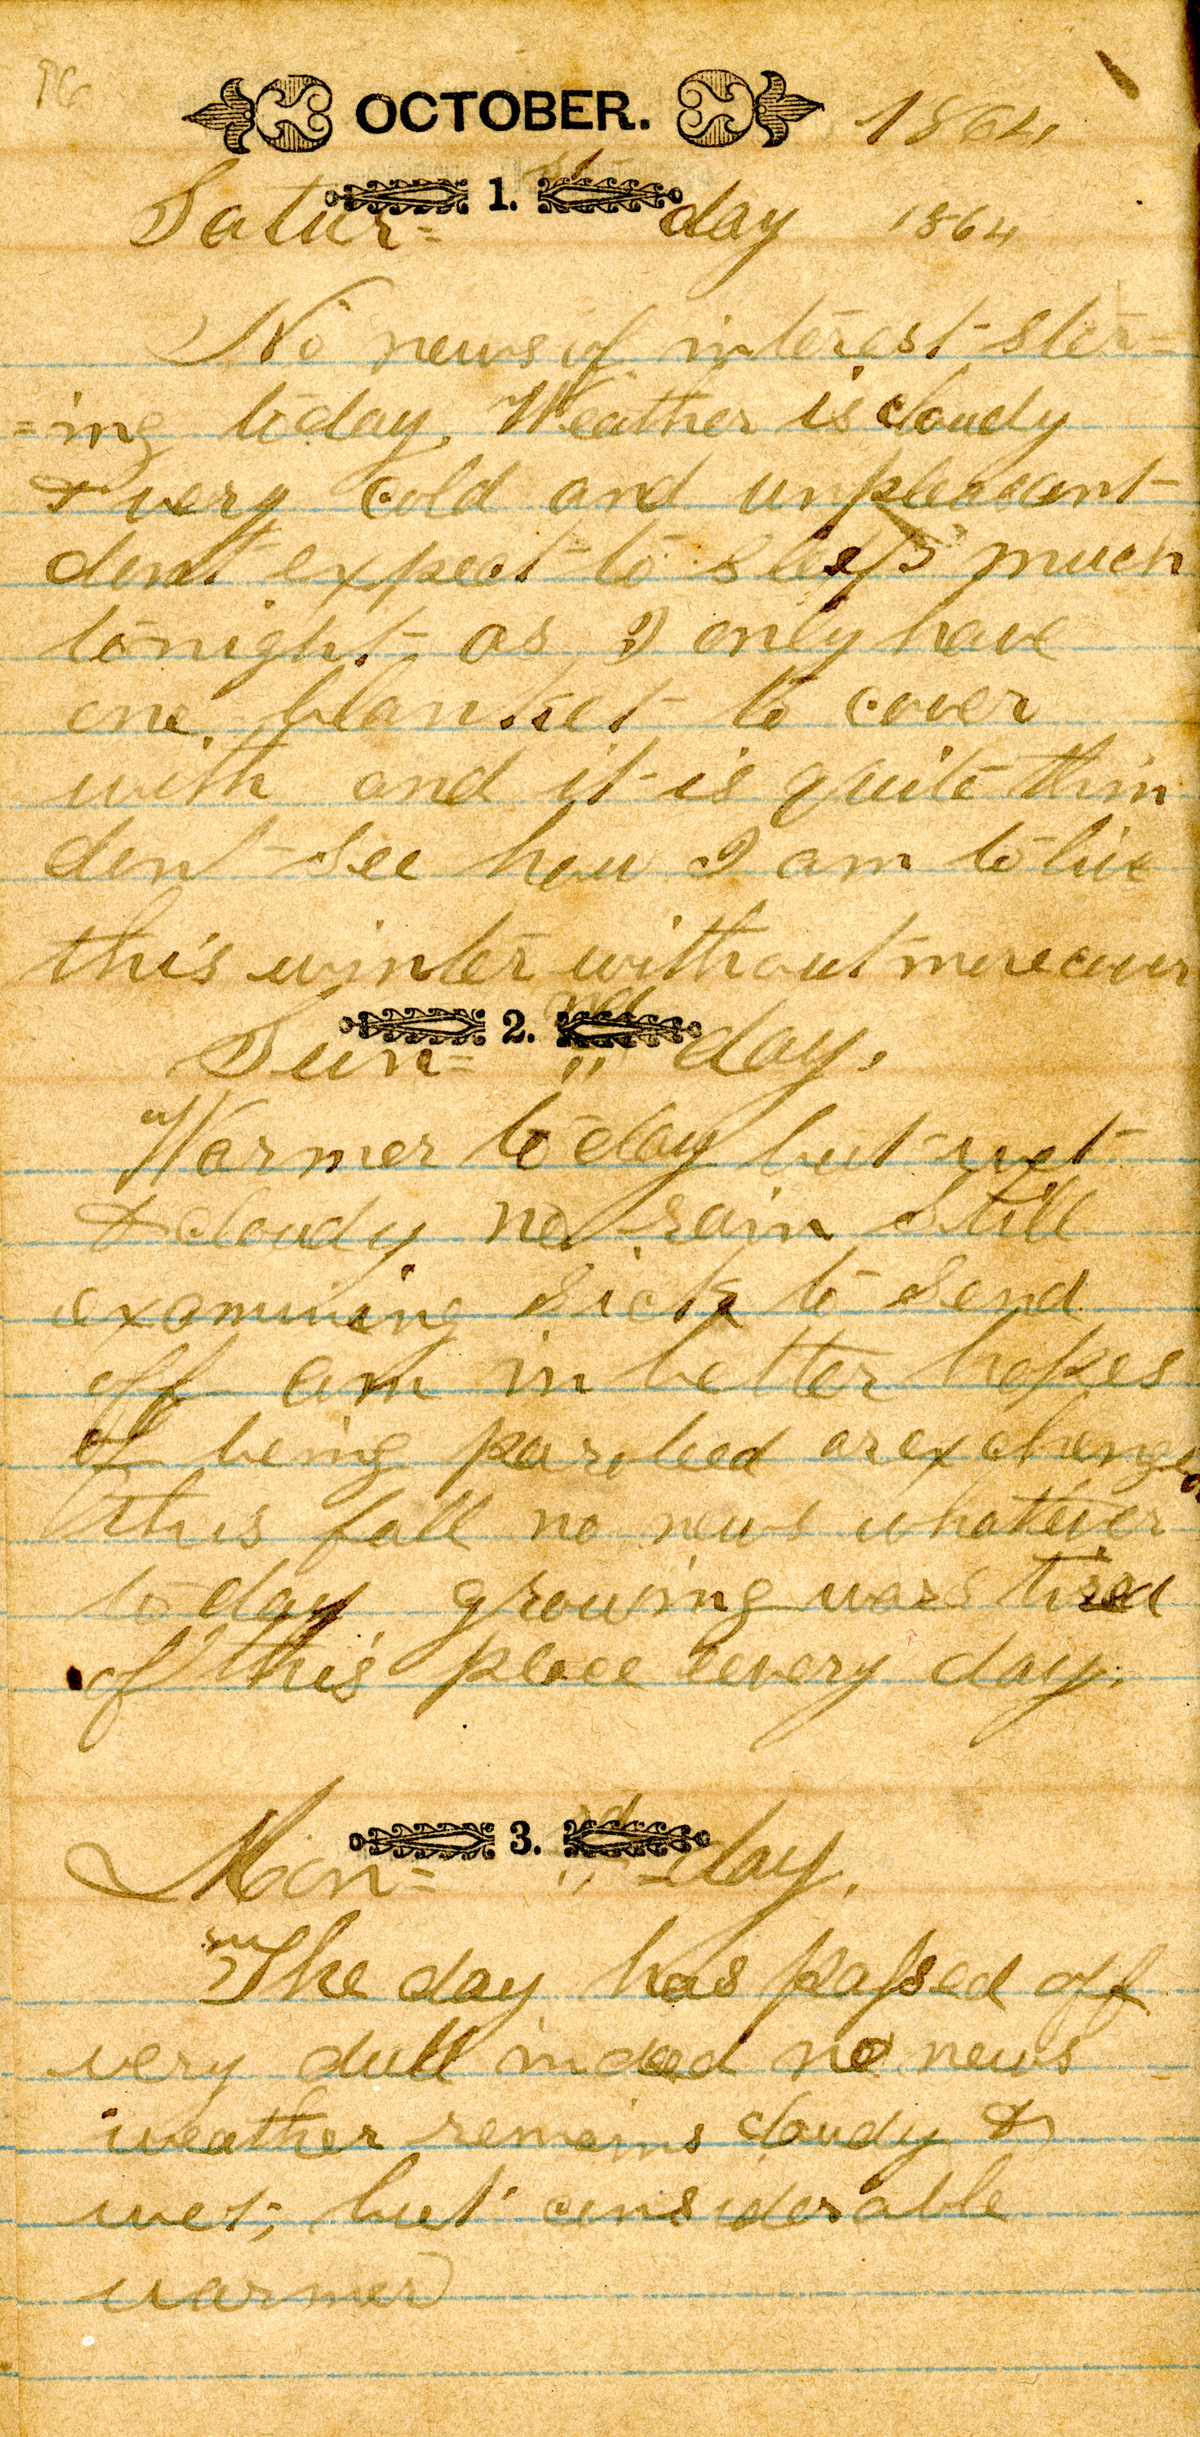 OCTOBER. 1864
1. st
Satur= day 1864
No news of interest ster=
=ing to day. Weather is cloudy
& very cold and unpleasant
dont expect to sleep much
to night as I only have
one blanket to cover
with and it is quite thin
dont see how I am to live
this winter without more cover
2. nd
Sun= " day.
Warmer to day but wet
& cloudy no rain Still
examining Sick to Send
off am in better hopes
of being paroled or exchanged
this fall no news whatever
to day growing wors tired
of this place every day.
3. rd
Mon= " =day.
The day has passed off
very dull indeed no news
weather remains cloudy &
wet, but considerable
warmer